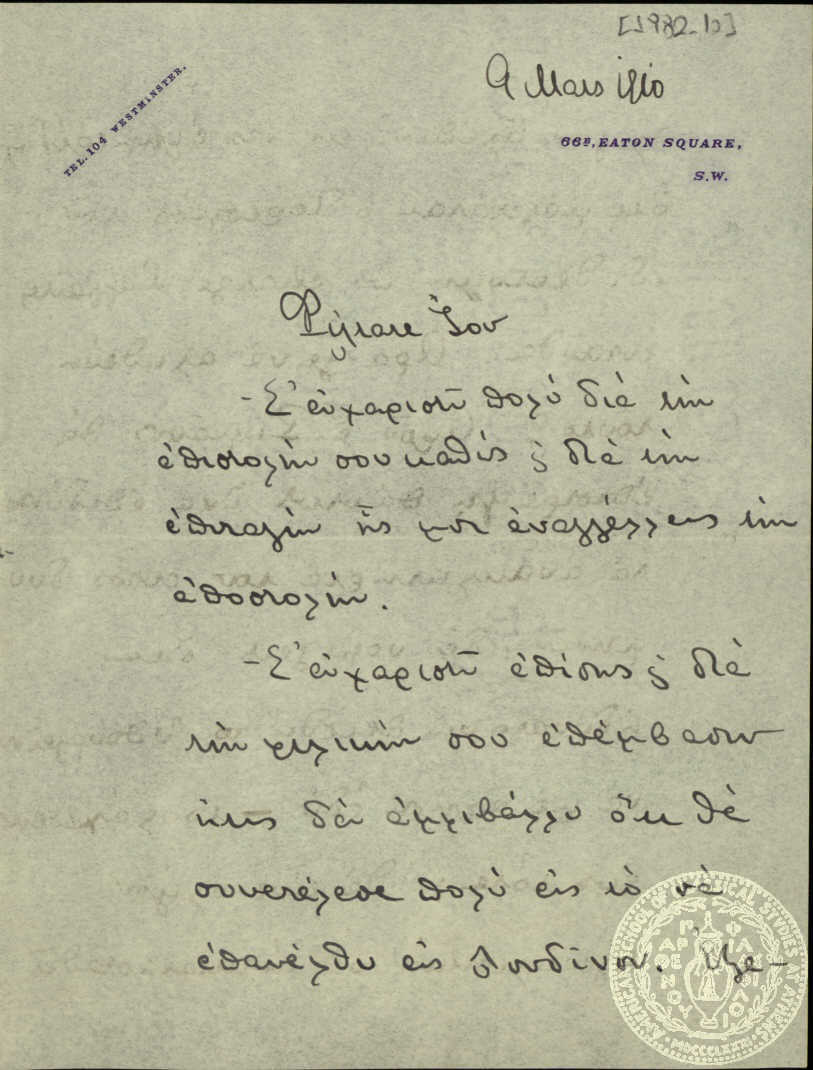 [1982.10]
9 Mars 1910
TEL. 104 WESTMINSTER.
66ᴮ, EATON SQUARE,
S.W.
Φίλτατε Ἴων
-Σ' εὐχαριστῶ πολὺ διὰ τὴν
ἐπιστολήν σου καθὼς & διὰ τὴν
ἐπιταγὴν ἧς μοι ἀναγγέλλεις τὴν
ἀποστολήν.
-Σ' εὐχαριστῶ ἐπίσης & διὰ
τὴν φιλικήν σου ἐπέμβασιν
ἥτις δὲν ἀμφιβάλλω ὅτι θὰ
συνετέλεσε πολὺ εἰς τὸ νὰ
ἐπανέλθω εἰς Λονδῖνον.
AMERICAN SCHOOL OF CLASSICAL STUDIES AT ATHENS
MDCCCLXXXI